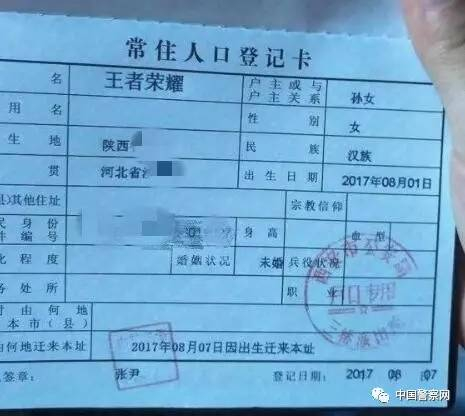 常住人口登记卡
名 王者荣耀 户主或与户主关系 孙女
用名 性别 女
生地 陕西 民族 汉族
贯 河北省 出生日期 2017年08月01日
县)其他住址 宗教信仰
民身份
件编号 身高 血型
化程度 婚姻状况 未婚 兵役状况
务处所 职业
时由何地
本市(县)
由何地迁来本址 2017年08月07日因出生迁来本址
人签章: 张尹 登记日期: 2017 08 07
中国警察网